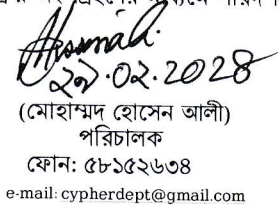 ২৯.০২.2028
(মোহাম্মদ হোসেন আলী)
পরিচালক
ফোন: ৫৮১৫২৬৩৪
e-mail: cypherdept@gmail.com